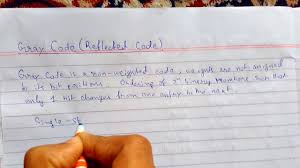 Gray Code (Reflected Code)
Gray Code is a non-weighted code, weights are not assigned
to its bit positions. Ordering of binary numbers such that
only 1 bit changes from one entry to the next.
Single-st